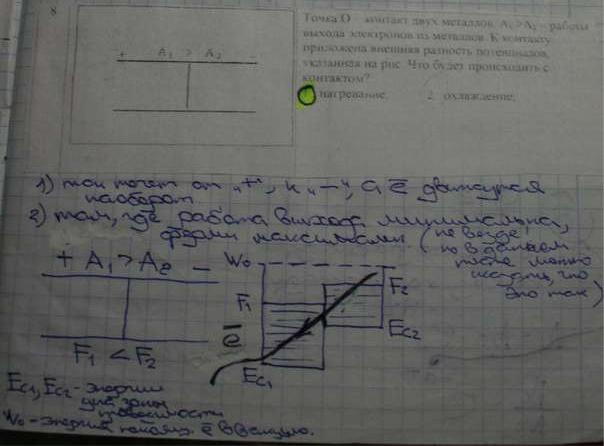 8
Точка О контакт двух металлов. A₁>A₂ – работы
выхода электронов из металлов. К контакту
приложена внешняя разность потенциалов,
указанная на рис. Что будет происходить с
контактом?
1. нагревание; 2. охлаждение;
+ A₁ > A₂ -
1) ток течет от "+" к "-", а ē движутся
наоборот
2) там, где работа выхода минимальна,
ферми максимальн (не везде,
но в данном
после можно
что
это так)
+ A₁ > A₂ -
F₁ < F₂
W₀
F₁
F₂
ē
Ec₁
Ec₂
Ec₁, Ec₂ - энергии
дна зоны
проводимости
W₀ - энергия ē в вакууме.